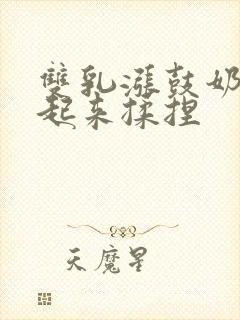 雙乳漲鼓奶
起来揉捏
天魔星